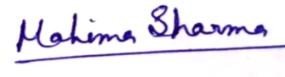 Mahima Sharma